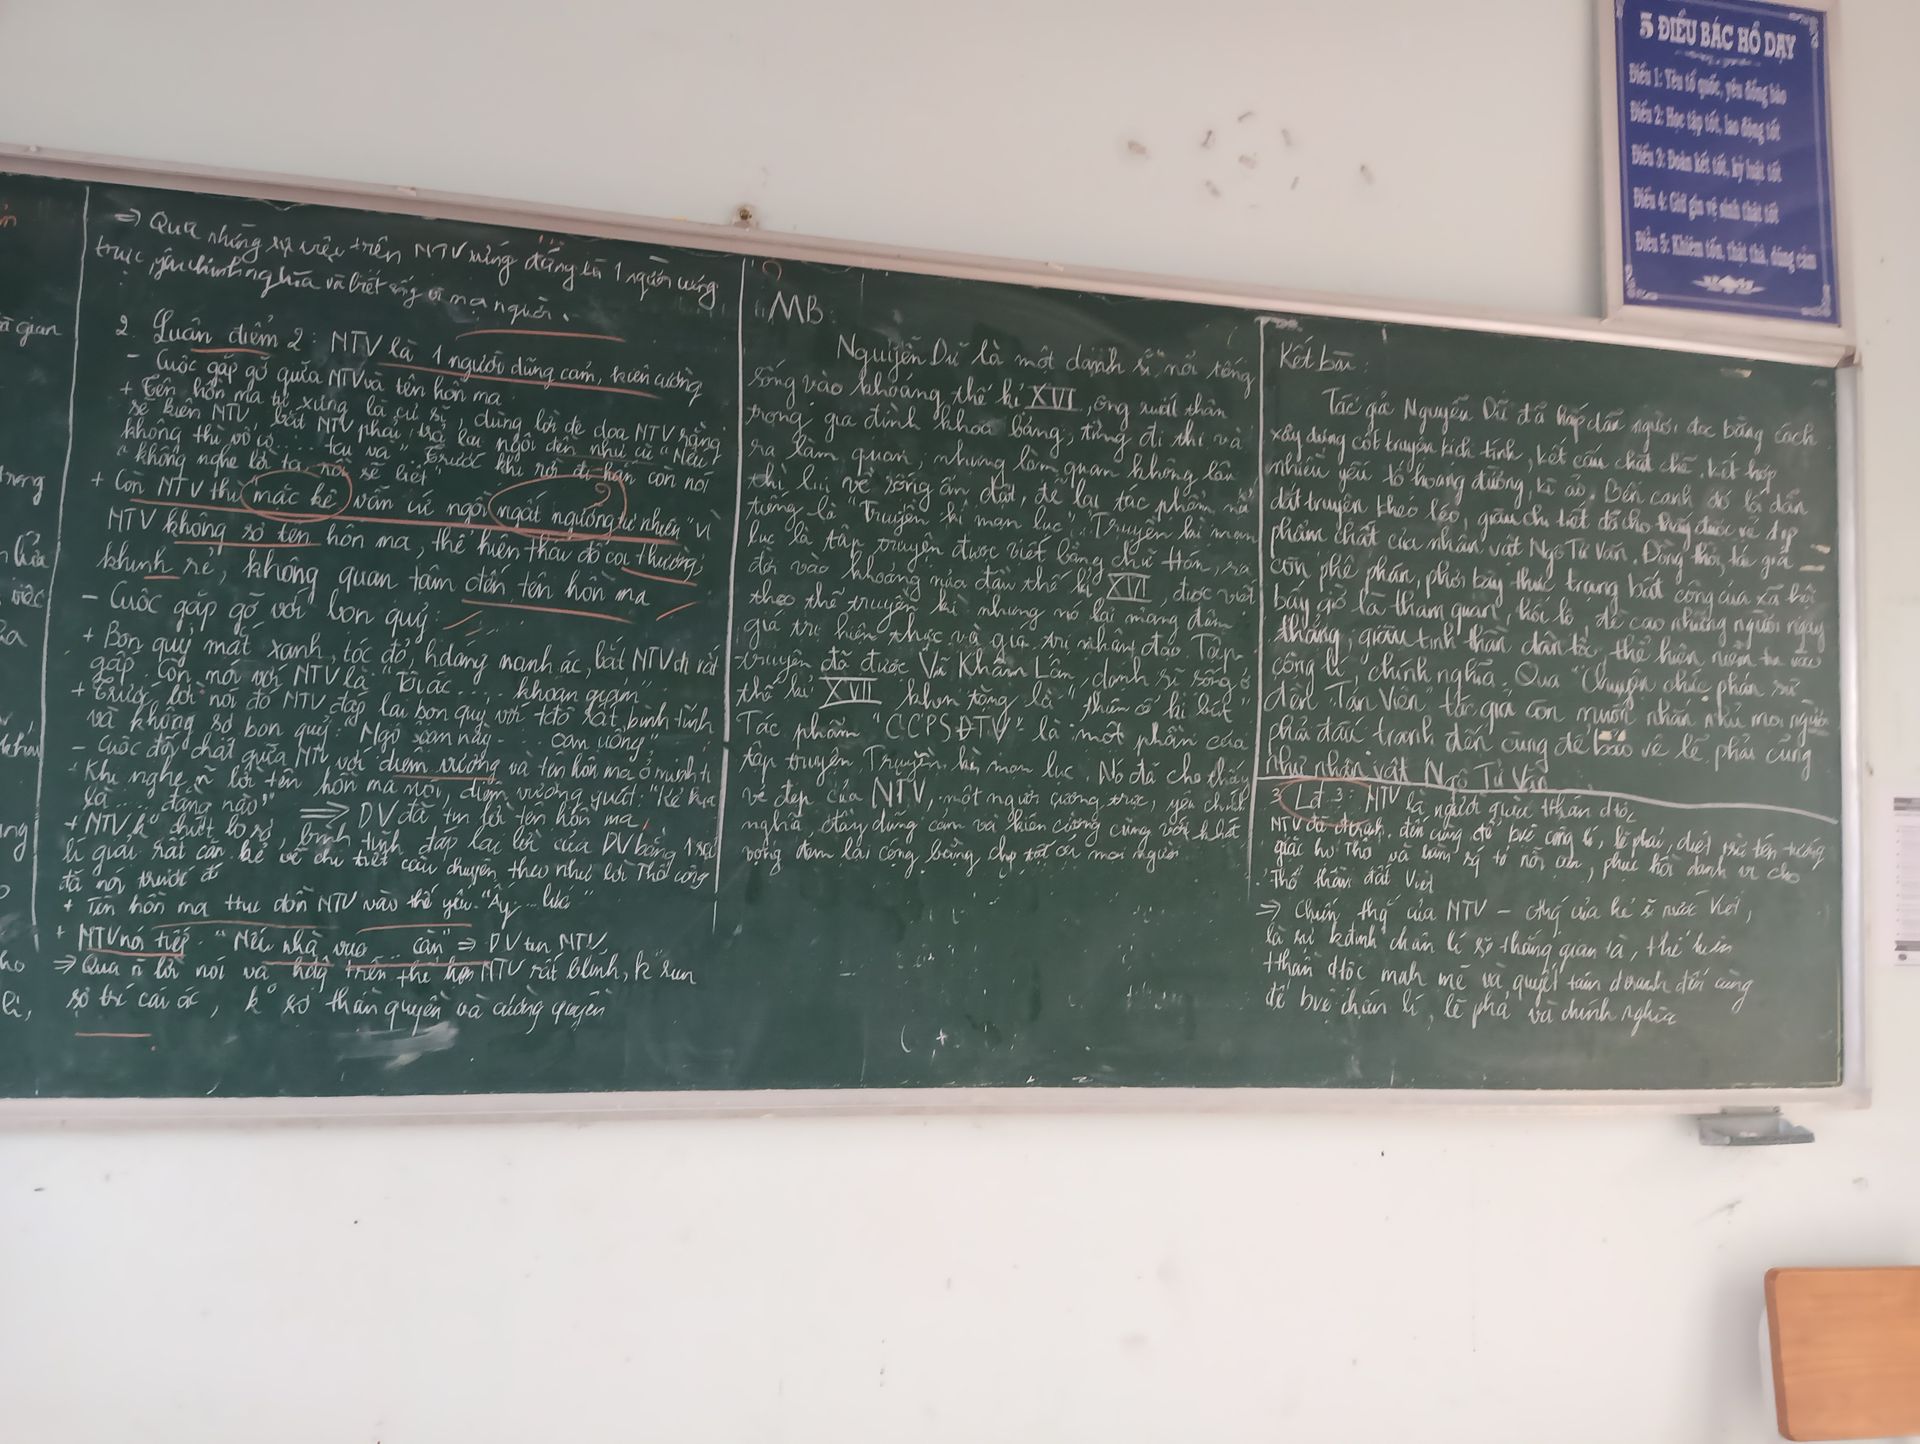 5 ĐIỀU BÁC HỒ DẠY
Điều 1: Yêu tổ quốc, yêu đồng bào
Điều 2: Học tập tốt, lao động tốt
Điều 3: Đoàn kết tốt, kỷ luật tốt
Điều 4: Giữ gìn vệ sinh thật tốt
Điều 5: Khiêm tốn, thật thà, dũng cảm
à gian
trong
ho
=> Qua những sự việc trên NTV xứng đáng là 1 người cương
trực, yêu chính nghĩa và biết sống vì mọi người.
2. Luận điểm 2: NTV là 1 người dũng cảm, kiên cường
- Cuộc gặp gỡ giữa NTV và tên hồn ma
+ Tên hồn ma tự xưng là cư sĩ, dùng lời đe dọa NTV rằng
sẽ kiện NTV, bắt NTV phải trả lại ngôi đền như cũ "Nếu
không thì vô cớ ... tai vạ" Trước khi rời đi hắn còn nói
"không nghe lời ta, rồi sẽ biết"
+ Còn NTV thì mặc kệ vẫn cứ ngồi ngất ngưởng tự nhiên "Vì
NTV không sợ tên hồn ma, thể hiện thái độ coi thường,
khinh rẻ, không quan tâm đến tên hồn ma
- Cuộc gặp gỡ với bọn quỷ:
+ Bọn quỷ mắt xanh, tóc đỏ, hdáng nanh ác, bắt NTV đi rất
gấp. Còn nói với NTV là "Tội ác ... khoan giảm"
+ Trước lời nói đó NTV đáp lại bọn quỷ với tđộ rất bình tĩnh
và không sợ bọn quỷ: "Ngô Soạn này ... oan uổng"
- Cuộc đối chất giữa NTV với diêm vương và tên hồn ma ở minh ti
- Khi nghe n lời tên hồn ma nói, diêm vương quát: "Kẻ kia
là ... đằng nào" => DV đã tin lời tên hồn ma,
+ NTV k° chút lo sợ, bình tĩnh đáp lại lời của DV bằng 1 sự
lí giải rất cặn kẽ về chi tiết câu chuyện theo như lời Thổ công
đã nói trước đó
+ Tên hồn ma tiếp dồn NTV vào thế yếu "Ấy ... lức"
+ NTV nói tiếp "Nếu nhà vua ... cãn" => DV tin NTV
=> Qua n lời nói và hđộg trên thể hiện NTV rất blĩnh, k° run
sợ trc cái ác, k° sợ thần quyền và cường quyền
MB:
Nguyễn Dữ là một danh sĩ nổi tiếng
sống vào khoảng thế kỉ XVI, ông xuất thân
trong gia đình khoa bảng, từng đi thi và
ra làm quan, nhưng làm quan không lâu
thì lui về sống ẩn dật, để lại tác phẩm nổi
tiếng là "Truyền kì mạn lục". Truyền kì mạn
lục là tập truyện được viết bằng chữ Hán, ra
đời vào khoảng nửa đầu thế kỉ XVI, được viết
theo thể truyền kì nhưng nó lại mang đậm
giá trị hiện thực và giá trị nhân đạo. Tập
truyện đã được Vũ Khâm Lân, danh sĩ sống ở
thế kỉ XVII khen tặng là "thiên cổ kì bút"
Tác phẩm "CCPSĐTV" là một phần của
tập truyện Truyền kì mạn lục. Nó đã cho thấy
vẻ đẹp của NTV, một người cương trực, yêu chính
nghĩa, đầy dũng cảm và kiên cường cùng với khát
vọng đem lại công bằng cho tất cả mọi người
Kết bài:
Tác giả Nguyễn Dữ đã hấp dẫn người đọc bằng cách
xây dựng cốt truyện kịch tính, kết cấu chặt chẽ, kết hợp
nhiều yếu tố hoang đường, kì ảo. Bên cạnh đó lối dẫn
dắt truyện khéo léo, giàu chi tiết đã cho thấy được vẻ đẹp
phẩm chất của nhân vật Ngô Tử Văn. Đồng thời, tác giả
còn phê phán, phơi bày thực trạng bất công của xã hội
bấy giờ là tham quan, hối lộ, đề cao những người ngay
thẳng, giàu tinh thần dân tộc, thể hiện niềm tin vào
công lí, chính nghĩa. Qua "Chuyện chức phán sự
đền Tản Viên" tác giả còn muốn nhắn nhủ mọi người
phải đấu tranh đến cùng để bảo vệ lẽ phải cũng
như nhân vật Ngô Tử Văn
3. Lđ 3: NTV là người giàu tthần dtộc
NTV đã đtranh đến cùng để bvệ công lí, lẽ phải, diệt trừ tên tướng
giặc họ Thô và làm sáng tỏ nỗi oan, phục hồi danh vị cho
Thổ thần đất Việt
=> Chiến thắg của NTV - cthg của kẻ sĩ nước Việt,
là sự kđịnh chân lí sẽ thắng gian tà, thể hiện
tthần dtộc mạnh mẽ và quyết tâm đtranh đến cùng
để bvệ chân lí, lẽ phải và chính nghĩa